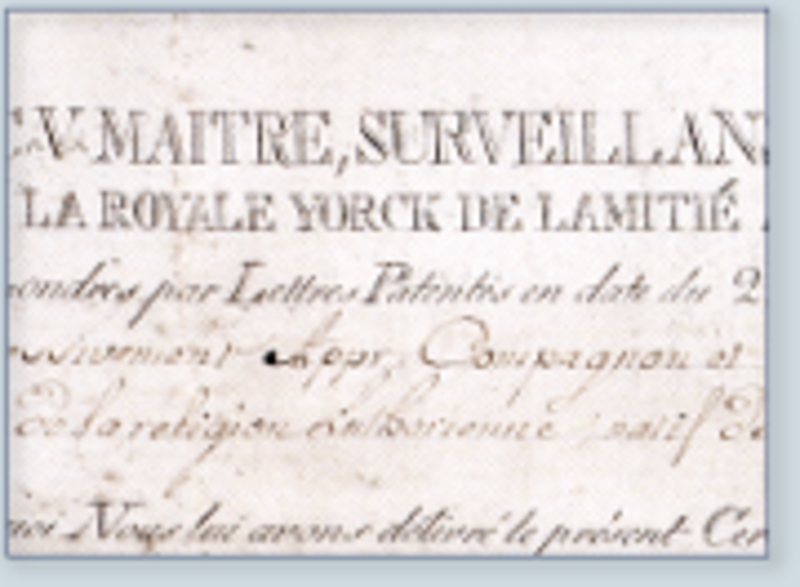 V. MAITRE, SURVEILLAN
LA ROYALE YORCK DE LAMITIÉ
ondres par Lettres Patentes en date du 2
Appr. Compagnon et
de la religion Luthérienne natif de
Nous lui avons délivré le présent Cer